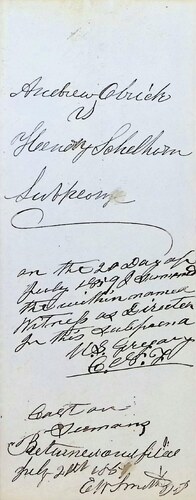 Andrew Obrick
vs
Henry Schelhirn
Subpeona
on the 20 Day of
July 1859 I Sumond
the within named
Witness as directed
in this subpoena
W S Gregory
Cost on
Sumons
Returned and filed
July 21st 185
E W Smith